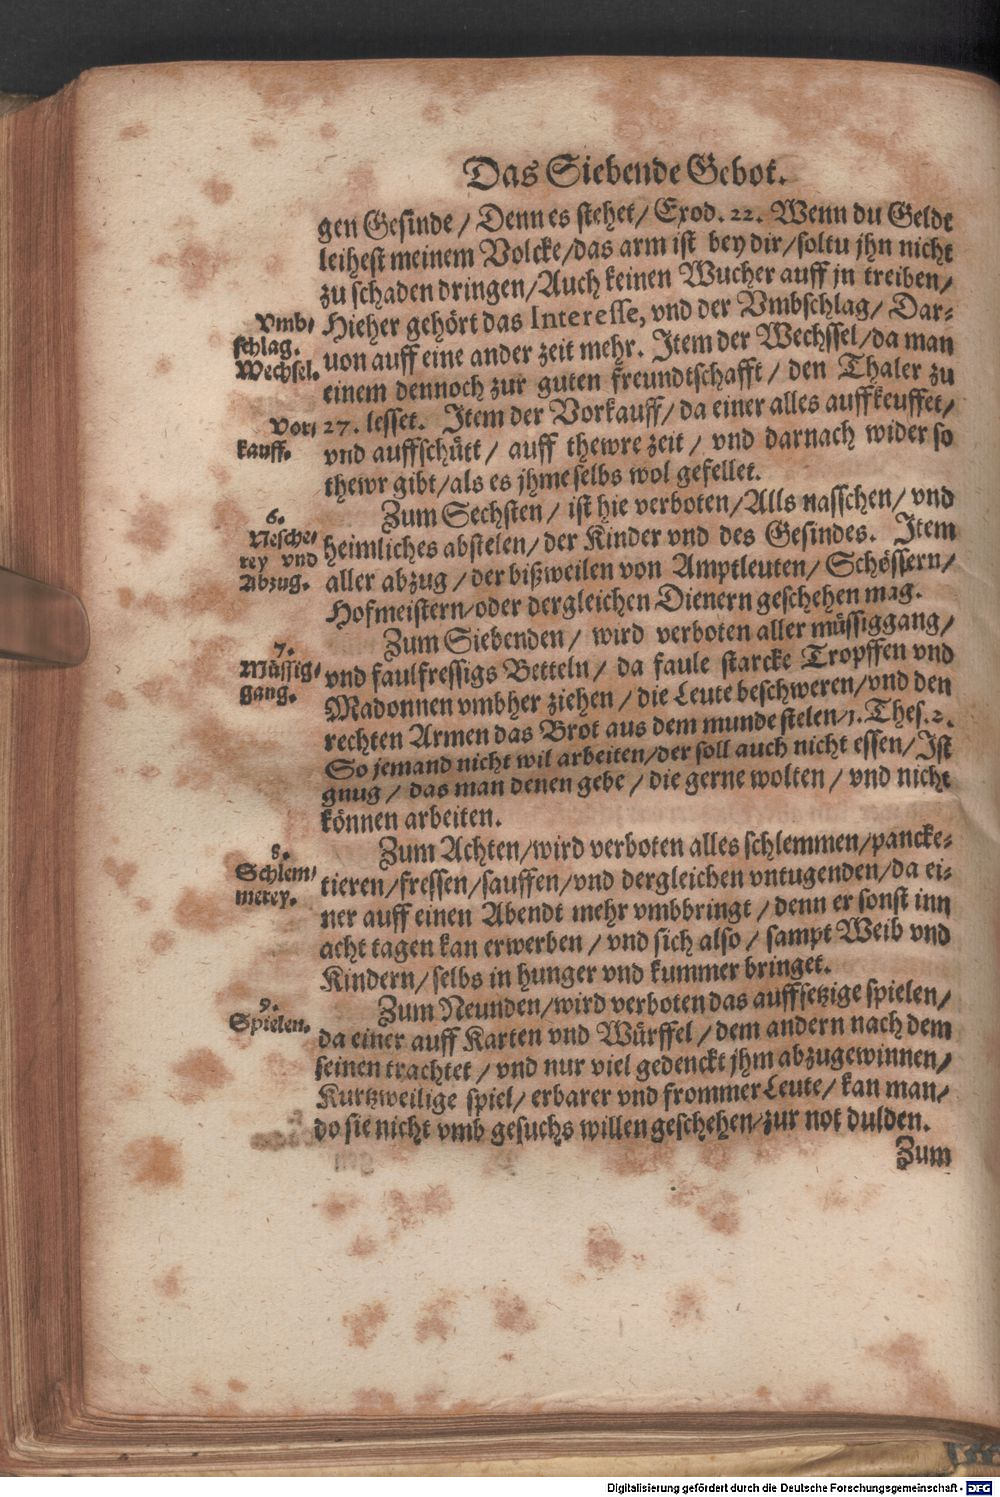 Das Siebende Gebot.
gen Gesinde / Denn es stehet / Exod. 22. Wenn du Geldt
leihest meinem Volcke / das arm ist bey dir / soltu jhn nicht
zu schaden dringen / Auch keinen Wucher auff jn treiben /
Vmb-
schlag.
Wechsel.
Hieher gehört das Interesse, vnd der Vmbschlag / Dar-
uon auff eine ander zeit mehr. Item der Wechssel / da man
einem dennoch zur guten freundtschafft / den Thaler zu
Vor-
kauff.
27. lesset. Item der Vorkauff / da einer alles auffkeuffet /
vnd auffschütt / auff thewre zeit / vnd darnach wider so
thewr gibt / als es jhme selbs wol gefellet.
6.
Nesche-
rey vnd
Abzug.
Zum Sechsten / ist hie verboten / Alls nasschen / vnd
heimliches abstelen / der Kinder vnd des Gesindes. Item
aller abzug / der bißweilen von Amptleuten / Schössern /
Hofmeistern / oder dergleichen Dienern geschehen mag.
7.
Müssig-
gang.
Zum Siebenden / wird verboten aller müssiggang /
vnd faulfressigs Betteln / da faule starcke Tropffen vnd
Madonnen vmbher ziehen / die Leute beschweren / vnd den
rechten Armen das Brot aus dem munde stelen / 1. Thes. 2.
So jemand nicht wil arbeiten / der soll auch nicht essen / Ist
gnug / das man denen gebe / die gerne wolten / vnd nicht
können arbeiten.
8.
Schlem-
merey.
Zum Achten / wird verboten alles schlemmen / pancke-
tieren / fressen / sauffen / vnd dergleichen vntugenden / da ei-
ner auff einen Abendt mehr vmbbringt / denn er sonst inn
acht tagen kan erwerben / vnd sich also / sampt Weib vnd
Kindern / selbs in hunger vnd kummer bringet.
9.
Spielen.
Zum Neunden / wird verboten das auffsetzige spielen /
da einer auff Karten vnd Würffel / dem andern nach dem
seinen trachtet / vnd nur viel gedenckt jhm abzugewinnen /
Kurtzweilige spiel / erbarer vnd frommer Leute / kan man /
do sie nicht vmb gesuchs willen geschehen / zur not dulden.
Zum
Digitalisierung gefördert durch die Deutsche Forschungsgemeinschaft - DFG